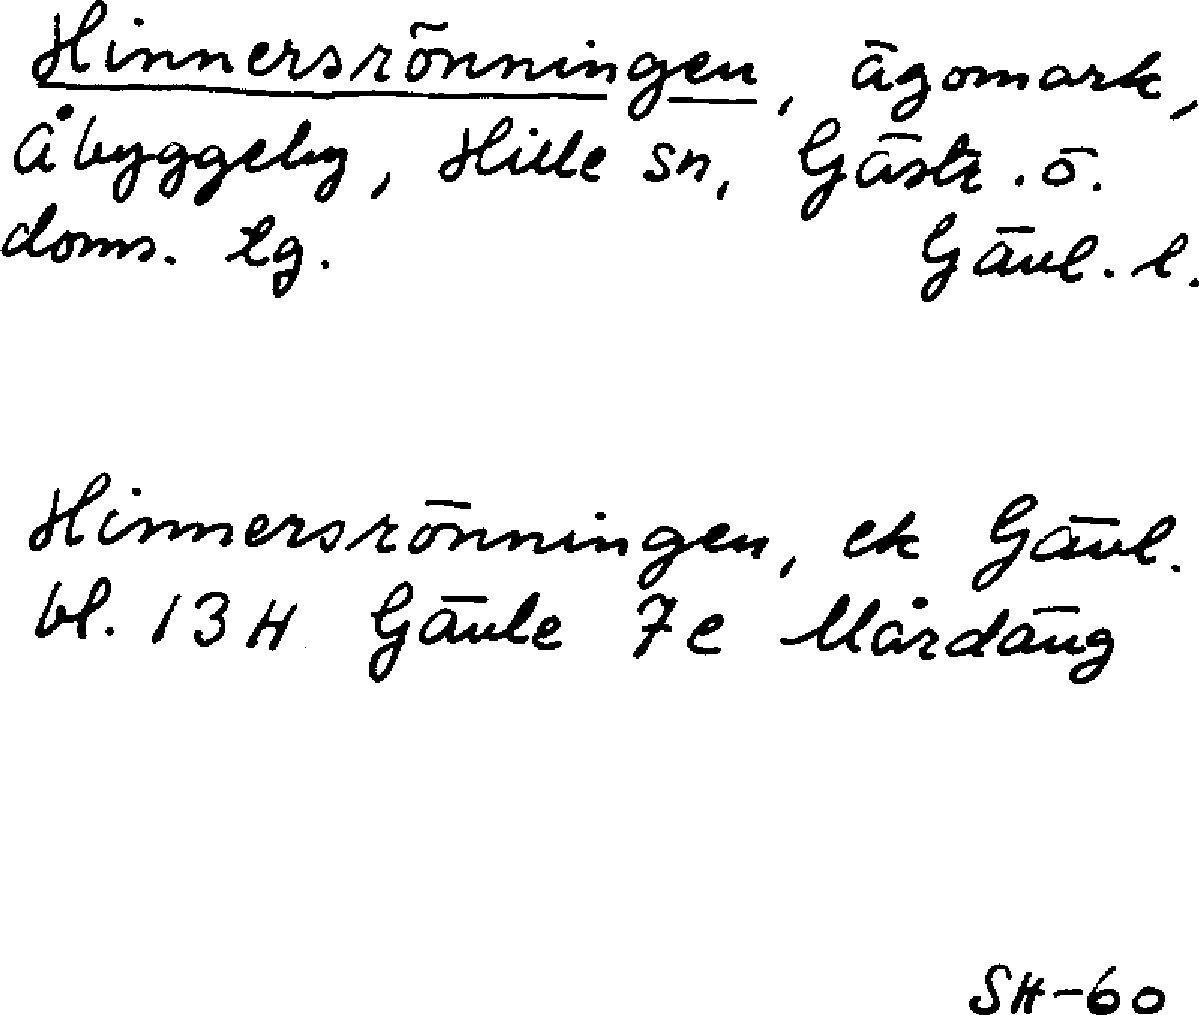 Hinnersrönningen, ägomark,
Åbyggeby, Hille sn, Gästr. ö.
doms. tg. Gävl. l.
Hinnersrönningen, ek Gävl.
bl. 13H Gävle 7c Mårdäng
SH-60